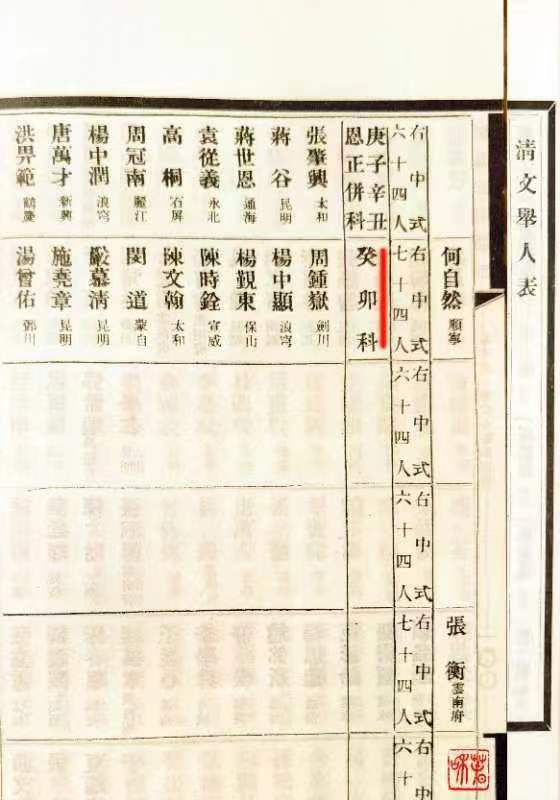 清文舉人表
何自然 順寧
張衡 雲南府
右中式
六十四人
右中式
七十四人
右中式
六十四人
右中式
六十四人
右中式
七十四人
右中式
六十
庚子辛丑
恩正併科
張肇興 太和
蔣谷 昆明
蔣世恩 通海
袁從義 永北
高桐 石屏
周冠南 麗江
楊中潤 浪穹
唐萬才 新興
洪畀範 鶴慶
癸卯科
周鍾嶽 劍川
楊中顯 浪穹
楊覲東 保山
陳時銓 宣威
陳文翰 太和
閔道 蒙自
嚴慕清 昆明
施堯章 昆明
湯曾佑 鄧川